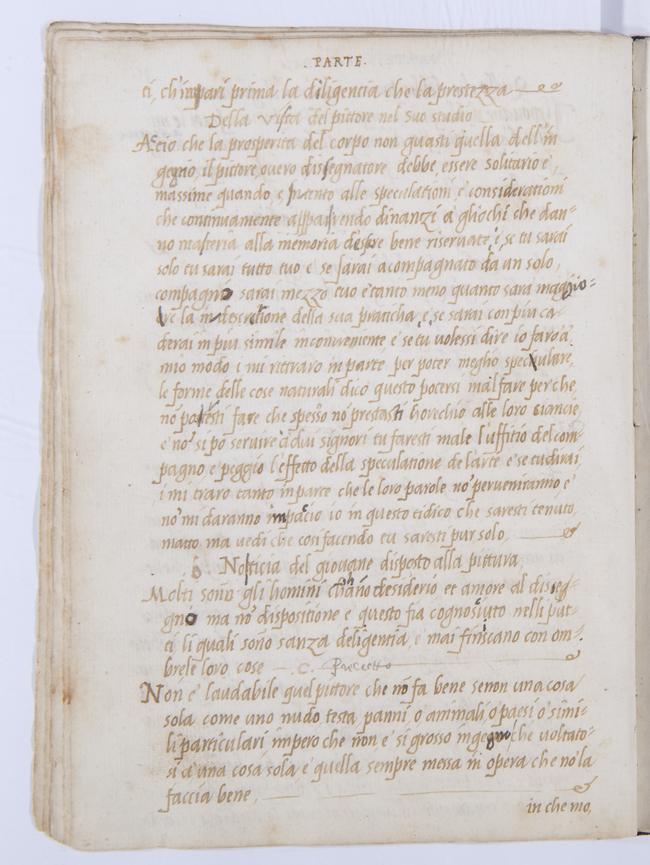 . PARTE .
ti, ch'impari prima la diligentia che la prestezza
Della vista del pittore nel suo studio
Accio che la prosperita del corpo non guasti quella dell'in
gegnio, il pittore overo dissegnatore debbe essere solitario e
massime quando e intento alle speculationi e considerationi
che continuamente apparendo dinanzi a gliochi che dan=
no materia alla memoria desser bene riservate, e se tu sarai
solo tu sarai tutto tuo e se sarai acompagnato da un solo,
compagno sarai mezzo tuo e tanto meno quanto sara maggio=
re la indescretione della sua praticha, e, se sarai con piu ca=
derai in piu simile inconveniente e se tu volessi dire io faro a
mio modo i mi ritraro in parte per poter meglio speculare,
le forme delle cose naturali dico questo potersi mal fare perche
nō potresti fare che spesso nō prestasti horechio alle loro ciancie,
e nō si po servire a dui signori tu faresti male l'uffitio del com=
pagno e peggio l'effetto della speculatione de larte e se tu dirai
i mi traro tanto in parte che le loro parole nō perveniranno e
nō mi daranno impacio io in questo ti dico che saresti tenuto,
matto ma vedi che cosi facendo tu saresti pur solo,
Noticia del giovane disposto alla pittura
Molti sono gli homini ch'hano desiderio et amore al disseg=
gno ma nō dispositione e questo fia cognosciuto nelli put=
ti li quali sono sanza deligentia, e mai finiscano con om=
brele loro cose — .C. Precetto
Non e' laudabile quel pittore che nō fa bene senon una cosa
sola come uno nudo testa panni o animali, o paesi o simi=
li particulari impero che non e' si grosso ingegno che voltato=
si a una cosa sola e quella sempre messa in opera che nō la
faccia bene,
in che mo,